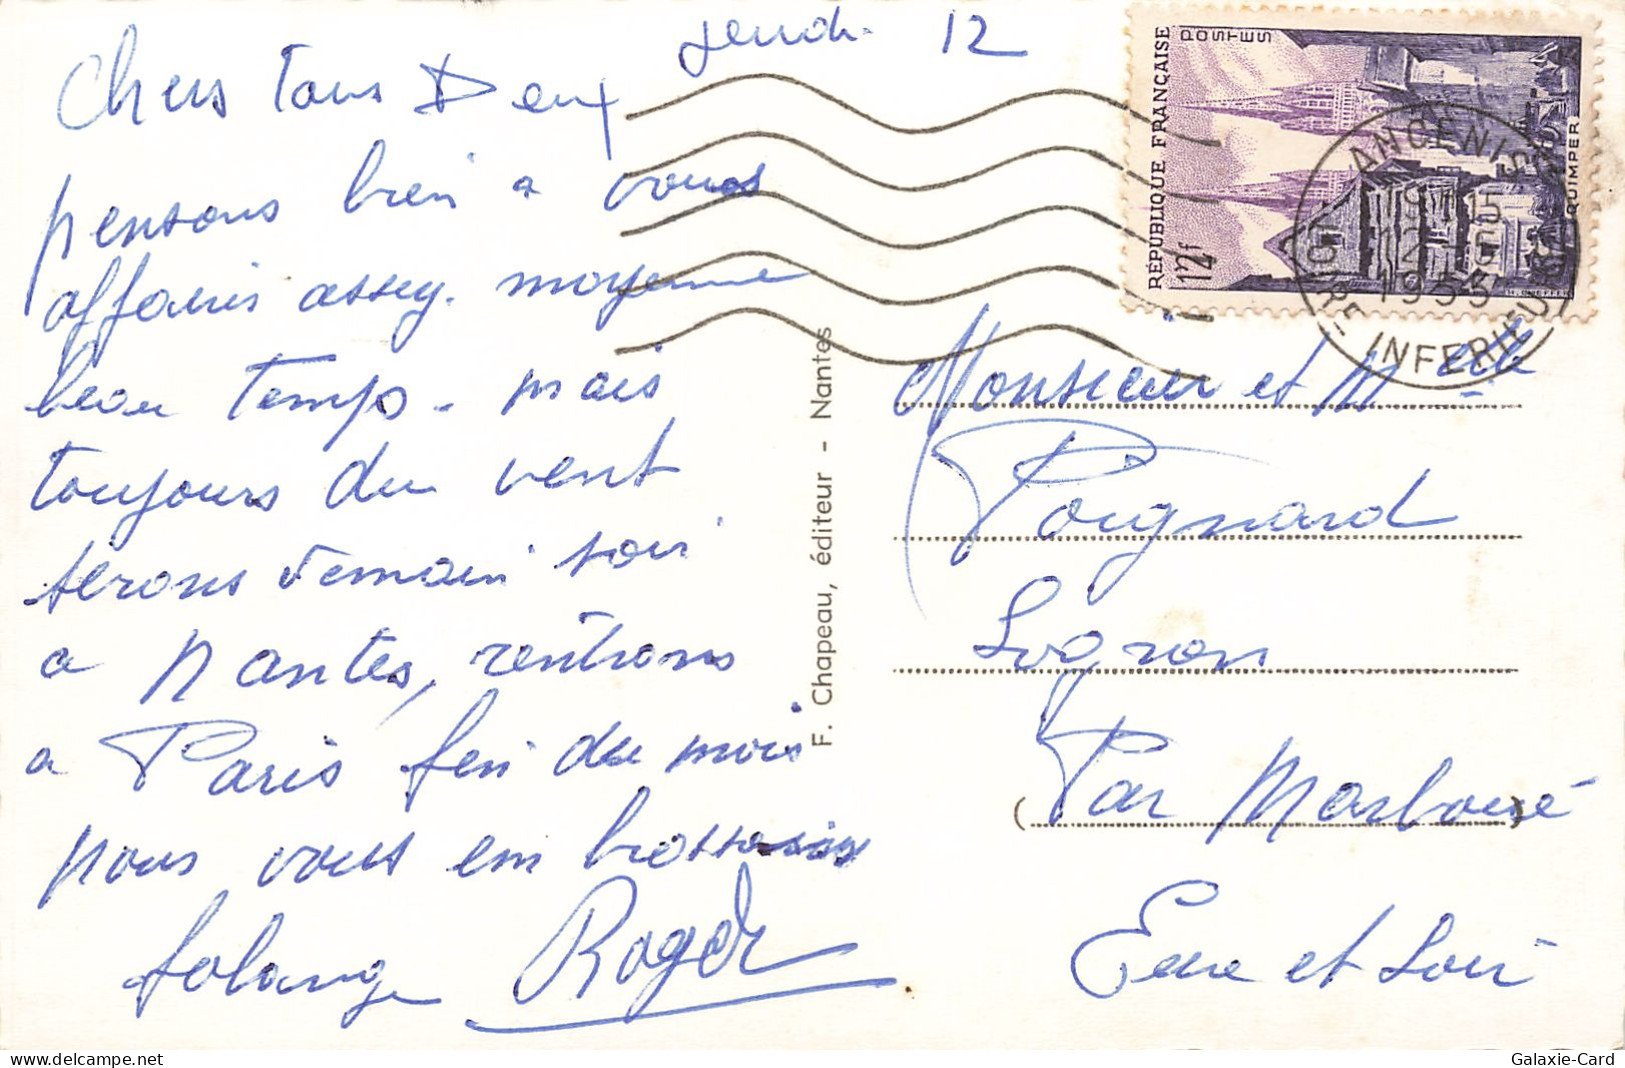 jeudi 12
Chers Tous Deux
pensons bien a vous
affaires assez. moyenne
beau temps - mais
toujours du vent
serons demain soir
a Nantes, rentrons
a Paris fin du mois
nous vous embrassons
Solange Roger
F. Chapeau, éditeur - Nantes
RÉPUBLIQUE FRANÇAISE
POSTES
12f
QUIMPER
ANCENIS
1955
LOIRE INFERIEURE
Monsieur et Melle
Poignard
Logron
(Par Marboué)
Eure et Loir
Galaxie-Card